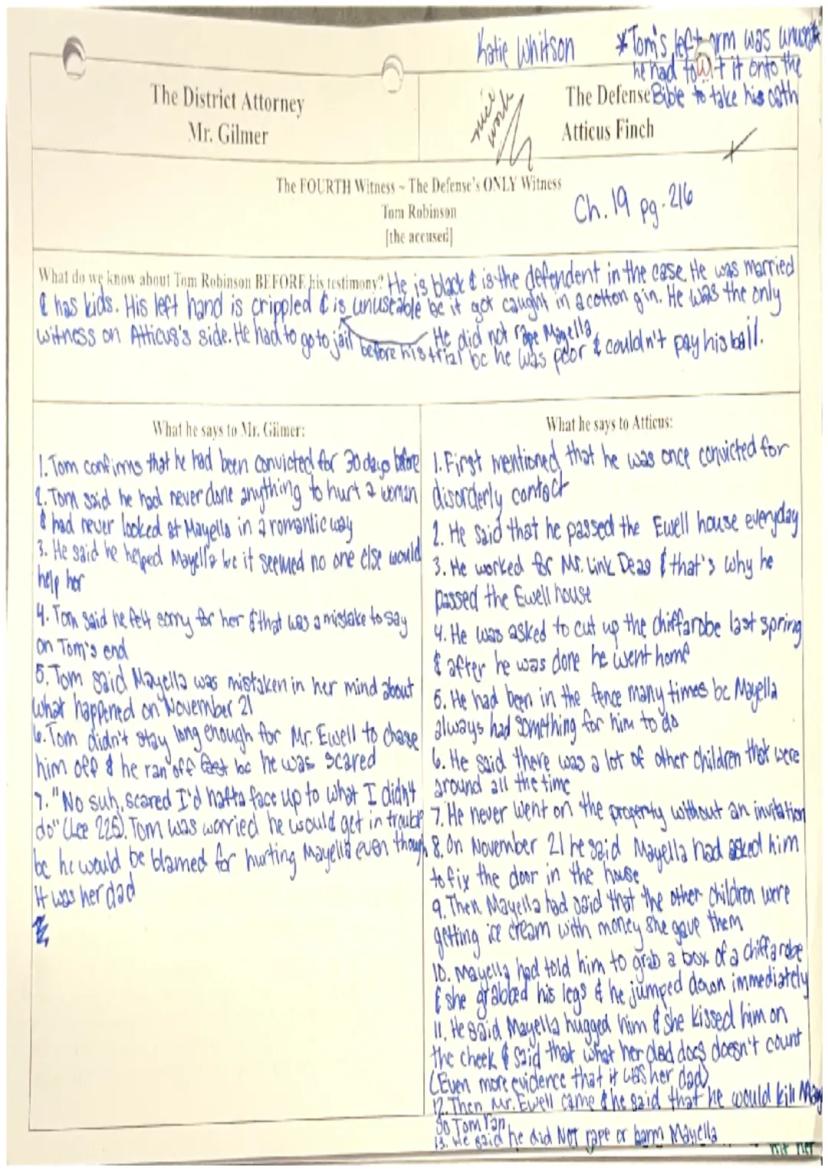 Katie Whitson
*Tom's left arm was unuseable
he had to lift it onto the
Bible to take his oath
The District Attorney
Mr. Gilmer
nice work
The Defense
Atticus Finch
The FOURTH Witness ~ The Defense's ONLY Witness
Tom Robinson
[the accused]
Ch. 19 pg. 216
What do we know about Tom Robinson BEFORE his testimony? He is black & is the defendent in the case. He was married
& has kids. His left hand is crippled & is unuseable bc it got caught in a cotton gin. He was the only
witness on Atticus's side. He had to go to jail before his trial bc he was poor & couldn't pay his bail.
He did not rape Mayella
What he says to Mr. Gilmer:
1. Tom confirms that he had been convicted for 30 days before
2. Tom said he had never done anything to hurt a woman
& had never looked at Mayella in a romantic way
3. He said he helped Mayella bc it seemed no one else would
help her
4. Tom said he felt sorry for her & that was a mistake to say
on Tom's end
5. Tom said Mayella was mistaken in her mind about
what happened on November 21
6. Tom didn't stay long enough for Mr. Ewell to chase
him off & he ran off fast bc he was scared
7. "No suh, scared I'd hafta face up to what I didn't
do" (Lee 225). Tom was worried he would get in trouble
bc he would be blamed for hurting Mayella even though
it was her dad
What he says to Atticus:
1. First mentioned that he was once convicted for
disorderly contact
2. He said that he passed the Ewell house everyday
3. He worked for Mr. Link Deas & that's why he
passed the Ewell house
4. He was asked to cut up the chiffarobe last spring
& after he was done he went home
5. He had been in the fence many times bc Mayella
always had something for him to do
6. He said there was a lot of other children that were
around all the time
7. He never went on the property without an invitation
8. On November 21 he said Mayella had asked him
to fix the door in the house
9. Then Mayella had said that the other children were
getting ice cream with money she gave them
10. Mayella had told him to grab a box of a chiffarobe
& she grabbed his legs & he jumped down immediately
11. He said Mayella hugged him & she kissed him on
the cheek & said that what her dad does doesn't count
(Even more evidence that it was her dad)
12. Then Mr. Ewell came & he said that he would kill May
so Tom ran
13. He said he did NOT rape or harm Mayella